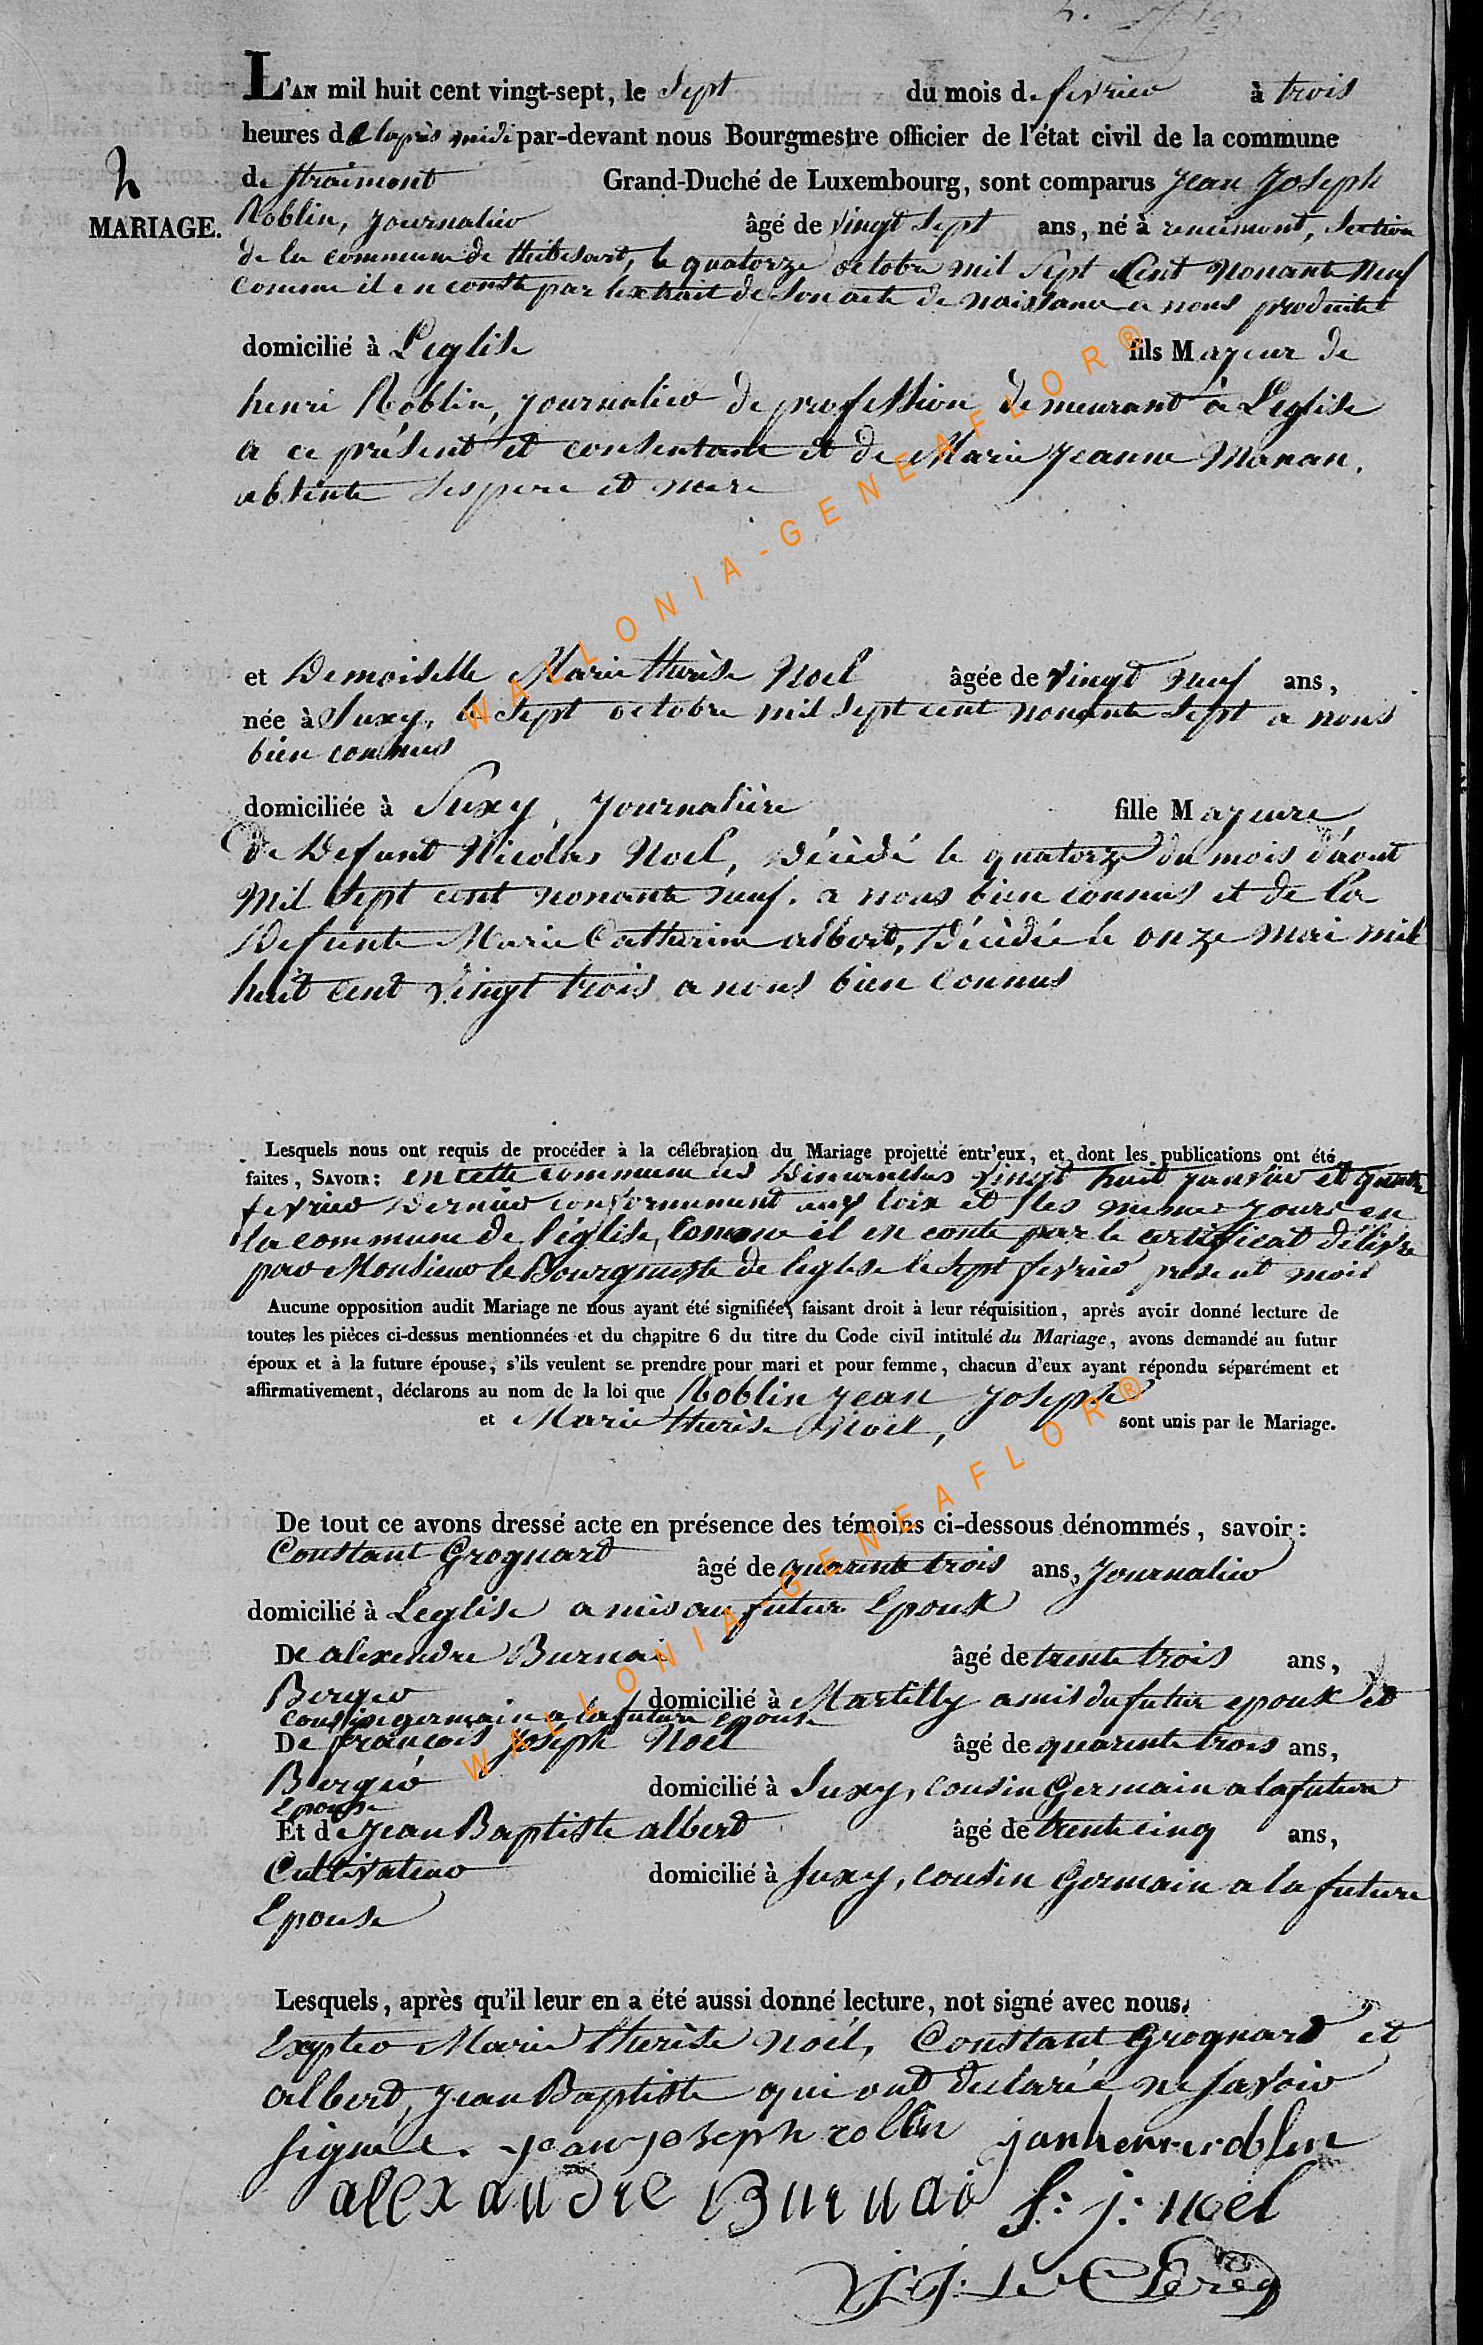 L'AN mil huit cent vingt-sept, le Sept du mois de fevrier à trois
heures de laprès midi par-devant nous Bourgmestre officier de l'état civil de la commune
de Straimont Grand-Duché de Luxembourg, sont comparus Jean Joseph
2
MARIAGE.
Roblin, journalier âgé de vingt Sept ans, né à rencimont, Section
de la commune de thibesart, le quatorze octobre mil Sept Cent Nonante Neuf
comme il en conste par lextrait de Son acte de naissance a nous produite
domicilié à Leglise fils Majeur de
henri Roblin, journalier de profession demeurant à Leglise
a ce présent et consentant et de Marie Jeanne Manan,
absente Ses pere et mere
et Demoiselle Marie thérèse Noel âgée de vingt Neuf ans,
née à Suxy, le Sept octobre mil Sept cent nonante Sept a nous
bien connus
domiciliée à Suxy, journalière fille Majeure
de Defunt Nicolas Noel, Décédé le quatorze du mois d'aout
Mil Sept cent nonante neuf. a nous bien connus et de la
Defunte Marie Catherine albert, Décédée le onze Mai mil
huit cent vingt trois a nous bien Connus
Lesquels nous ont requis de procéder à la célébration du Mariage projetté entr'eux, et dont les publications ont été
faites, SAVOIR: en cette commune les Dimanches vingt huit janvier et quatre
fevrier Dernier conformement aux loix et les memes jours en
la commune de l'église, Comme il en conte par le certificat délivré
par Monsieur le Bourgmestre de leglise le Sept fevrier present mois
Aucune opposition audit Mariage ne nous ayant été signifiée, faisant droit à leur réquisition, après avoir donné lecture de
toutes les pièces ci-dessus mentionnées et du chapitre 6 du titre du Code civil intitulé du Mariage, avons demandé au futur
époux et à la future épouse, s'ils veulent se prendre pour mari et pour femme, chacun d'eux ayant répondu séparément et
affirmativement, déclarons au nom de la loi que Roblin Jean Joseph
et Marie thérèse Noel, sont unis par le Mariage.
De tout ce avons dressé acte en présence des témoins ci-dessous dénommés, savoir:
Constant Grognard âgé de quarente trois ans, journalier
domicilié à Leglise amis au futur Epoux
De alexendre Burnai âgé de trente trois ans,
Berger domicilié à Martilly amis du futur epoux et
cousin germain a la future epouse
De françois joseph Noel âgé de quarente trois ans,
Berger domicilié à Suxy, cousin Germain a la future
Epouse
Et de jean Baptiste albert âgé de trente cinq ans,
Cultivateur domicilié à Suxy, cousin Germain a la future
Epouse
Lesquels, après qu'il leur en a été aussi donné lecture, not signé avec nous.
Expter Marie thérèse Noel, Constant Grognard et
albert, jean Baptiste qui ont declaré ne savoir
signée. jean joseph roblin jan henri roblin
alexandre Burnai f: j: noel
J: Le Clercq
WALLONIA-GENEAFLOR®
WALLONIA-GENEAFLOR®